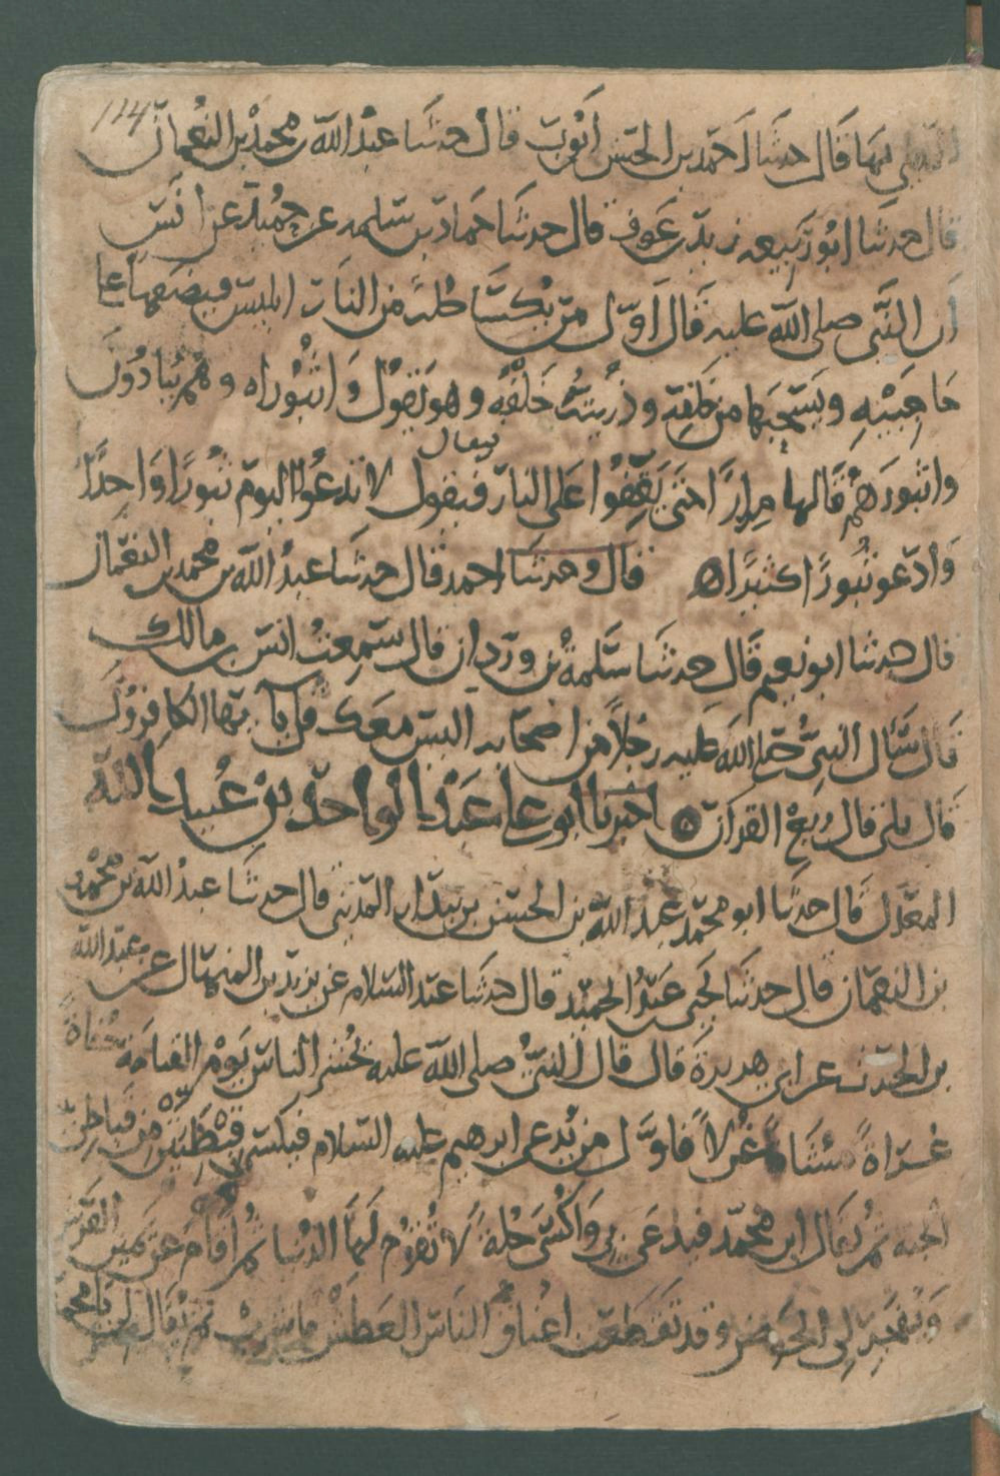 124
بها قال حدثنا احمد بن الحسن ايوب قال حدثنا عبد الله بن محمد بن النعمان
قال حدثنا ابو ربيعه زيد بن عوف قال حدثنا حماد بن سلمه عن حميد عن انس
ان النبي صلى الله عليه قال اول من يكسا حلة من النار ابليس فيضعها على
حاجبيه ويسحبها من خلفه وذريته خلفه وهو يقول واثبوراه وهم ينادون
واثبورهم قالها مرارا حتى يقفوا على النار فيقول لا تدعوا اليوم ثبورا واحدا
فيقال
وادعو ثبورا كثيرا ه قال وحدثنا احمد قال حدثنا عبد الله بن محمد بن النعمان
قال حدثنا ابو نعيم قال حدثنا سلمة بن وردان قال سمعت انس بن مالك
قال سال النبي صلى الله عليه رجلا من اصحابه اليس معك قل يا ايها الكافرون
قال بلى قال ربع القران ه اخبرنا ابو علي عبد الواحد بن عبيد الله
المعدل قال حدثنا ابو محمد عبد الله بن الحسن بن بندار المديني قال حدثنا عبد الله بن محمد
بن النعمان قال حدثنا يحيى عبد الحميد قال حدثنا عبد السلام عن يزيد بن المنهال عن عبد الله
بن الحرث عن ابي هريرة قال قال النبي صلى الله عليه يحشر الناس يوم القيامة
عراة مشاة غرلا فاول من يدعى ابرهيم عليه السلام فيكسى قبطيتين من قباطي
الجنه ثم يقال اين محمد فيدعى بي واكسى حلة لا تقوم لها الدنيا ثم اقام عن يمين
وتفجر لي الحوض وقد تقطعت اعناق الناس العطش فاشرب ثم يقال لي يا محمد